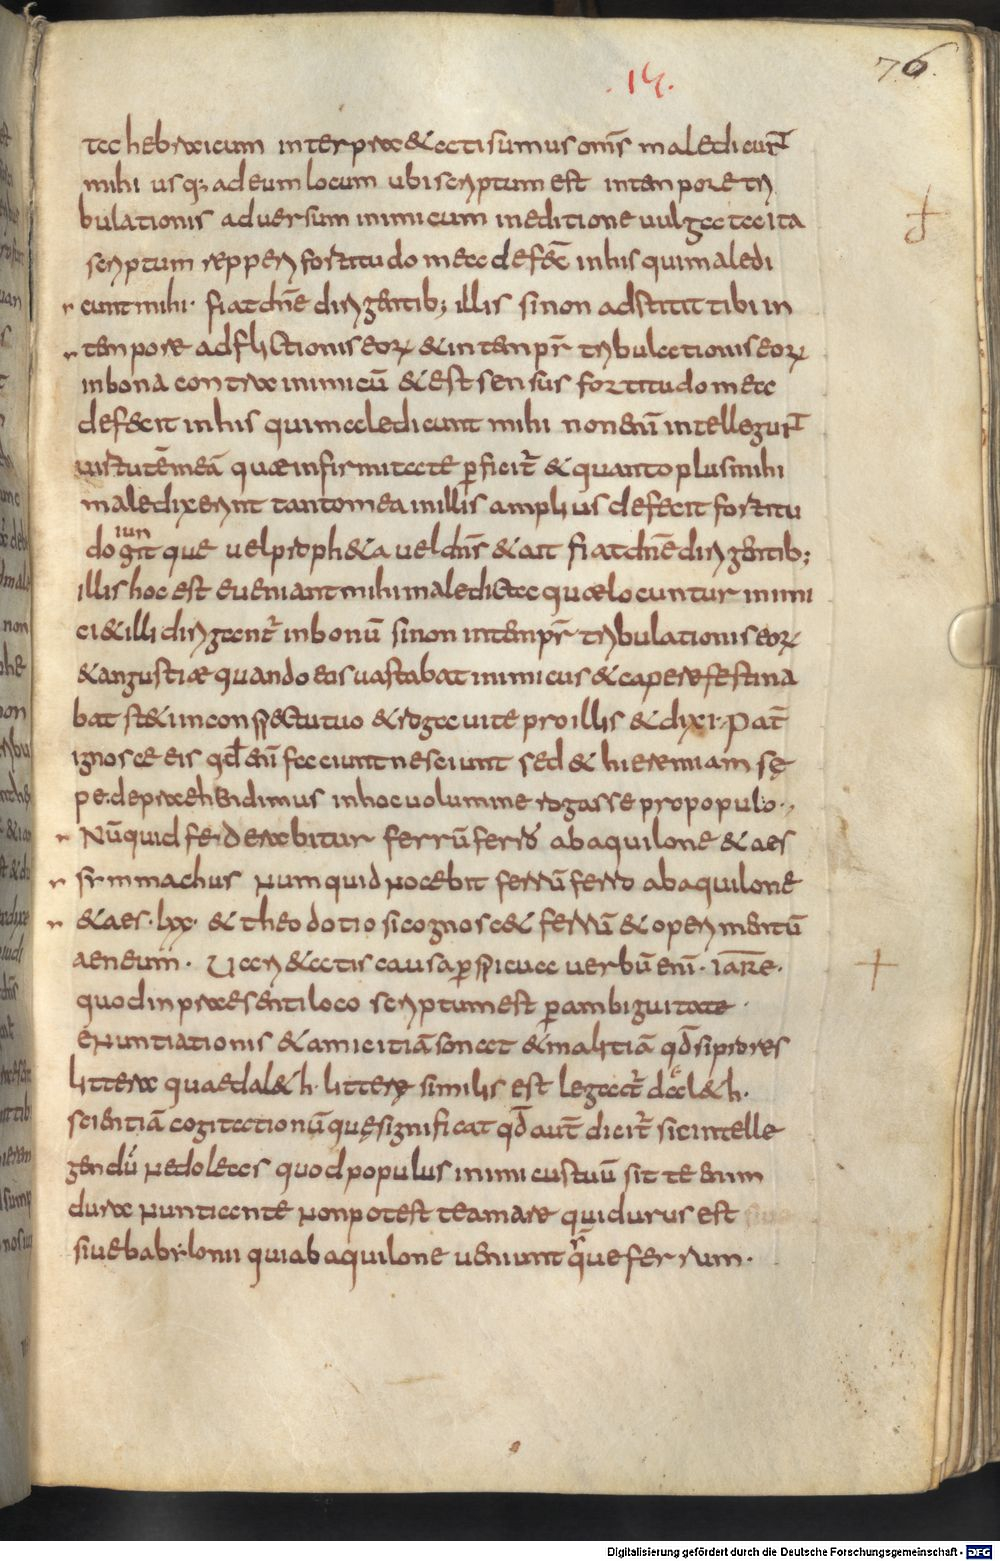 76.
14.
ta hebraicum interpraetati sumus om̄s maledicunt̄
mihi usq; ad eum locum ubi scriptum est in tempore tri
bulationis adversum inimicum in editione vulgata ita
scriptum repperi fortitudo mea defec̄ in his qui maledi
cunt mihi· fiat dn̄e dirigentib; illis si non adstitit tibi in
tempore adflictionis eoꝝ & in tempr̄ tribulationis eoꝝ
in bona contra inimicū & est sensus fortitudo mea
defecit in his qui maledicunt mihi non eni̅ intellegunt̄
virtutē meā quae infirmitate ꝑficit̄ & quanto plus mihi
maledixerint tanto mea in illis amplius defecit fortitu
do git que vel proph&a vel dn̄s & ait fiat dn̄e dirigentib;
iun
illis hoc est eveniant mihi maledicta quae locuntur inimi
ci & illi dirigant̄ in bonū si non in tempr̄ tribulationis eoꝝ
& angustiae quando eos vastabat inimicus & capere festina
bat st&i in conspectu tuo & rogavi te pro illis & dixi· Pat̄
ignosce eis qd̄ eni̅ faciunt nesciunt sed & hieremiam sę
pe praehendimus in hoc volumine rogasse pro populo·,
Nūquid federabitur ferrū ferro ab aquilone & aes
symmachus Numquid nocebit ferrū ferro ab aquilone
& aes· lxx· & theodotio si cognosc& ferrū & operimentū
aeneum· Varietatis causa ꝑspicua verbū eni̅· iare·
quod in praesenti loco scriptum est ꝑ ambiguitate·
enuntiationis & amicitiā sonat & malitiā qd̄ si pro res
littera quae dal&h· litterę similis est legat̄ dal&h·
scientiā cogitationū quę significat qd̄ aut̄ dicit̄ sic intelle
gendū ne doleas quod populus inimicus tuus sit te enim
dura nuntiante non potest te amare qui durus est
sive babylonii qui ab aquilone veniunt q̄ue ferrum·
Digitalisierung gefördert durch die Deutsche Forschungsgemeinschaft - DFG